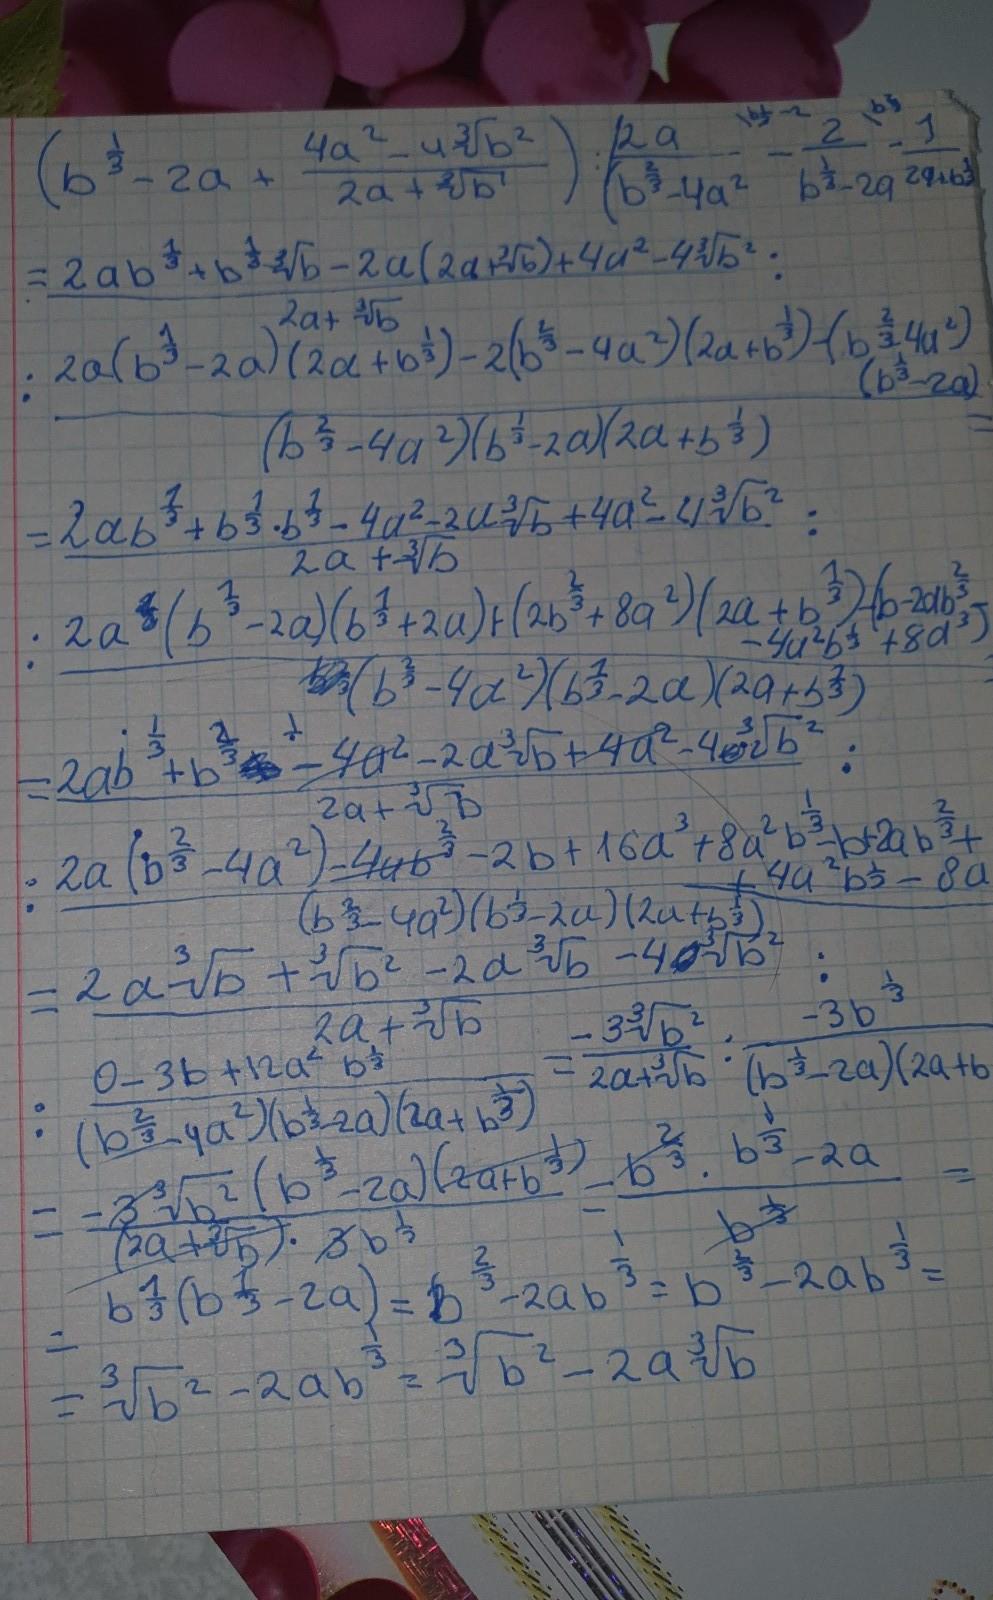 (b^{1/3} - 2a + \frac{4a^2 - 4\sqrt[3]{b^2}}{2a + \sqrt[3]{b}}) : (\frac{2a}{b^{2/3} - 4a^2} - \frac{2}{b^{1/3} - 2a} - \frac{1}{2a + b^{1/3}}
= \frac{2ab^{1/3} + b^{1/3} \cdot \sqrt[3]{b} - 2a(2a + \sqrt[3]{b}) + 4a^2 - 4\sqrt[3]{b}^2}{2a + \sqrt[3]{b}} :
: \frac{2a(b^{1/3} - 2a)(2a + b^{1/3}) - 2(b^{2/3} - 4a^2)(2a + b^{1/3}) - (b^{2/3} - 4a^2)(b^{1/3} - 2a)}{(b^{2/3} - 4a^2)(b^{1/3} - 2a)(2a + b^{1/3})} =
= \frac{2ab^{1/3} + b^{1/3} \cdot b^{1/3} - 4a^2 - 2a\sqrt[3]{b} + 4a^2 - 4\sqrt[3]{b}^2}{2a + \sqrt[3]{b}} :
: \frac{2a(b^{1/3} - 2a)(b^{1/3} + 2a) + (2b^{2/3} + 8a^2)(2a + b^{1/3}) - (b - 2ab^{2/3} - 4a^2b^{1/3} + 8a^3)}{(b^{2/3} - 4a^2)(b^{1/3} - 2a)(2a + b^{1/3})} =
= \frac{2ab^{1/3} + b^{2/3} - 4a^2 - 2a\sqrt[3]{b} + 4a^2 - 4\sqrt[3]{b}^2}{2a + \sqrt[3]{b}} :
: \frac{2a(b^{2/3} - 4a^2) - 4ab^{2/3} - 2b + 16a^3 + 8a^2b^{1/3} - b + 2ab^{2/3} + 4a^2b^{1/3} - 8a}{(b^{2/3} - 4a^2)(b^{1/3} - 2a)(2a + b^{1/3})}
= \frac{2a\sqrt[3]{b} + \sqrt[3]{b^2} - 2a\sqrt[3]{b} - 4\sqrt[3]{b}^2}{2a + \sqrt[3]{b}} :
: \frac{0 - 3b + 12a^2 b^{1/3}}{(b^{2/3} - 4a^2)(b^{1/3} - 2a)(2a + b^{1/3})} = \frac{-3\sqrt[3]{b^2}}{2a + \sqrt[3]{b}} : \frac{-3b^{1/3}}{(b^{1/3} - 2a)(2a + b}
= \frac{-3\sqrt[3]{b^2}(b^{1/3} - 2a)(2a + b^{1/3})}{(2a + \sqrt[3]{b}) \cdot 3b^{1/3}} = \frac{b^{2/3} \cdot b^{1/3} - 2a}{b^{1/3}} =
= b^{1/3}(b^{1/3} - 2a) = b^{2/3} - 2ab^{1/3} = b^{2/3} - 2ab^{1/3} =
= \sqrt[3]{b}^2 - 2ab^{1/3} = \sqrt[3]{b}^2 - 2a\sqrt[3]{b}